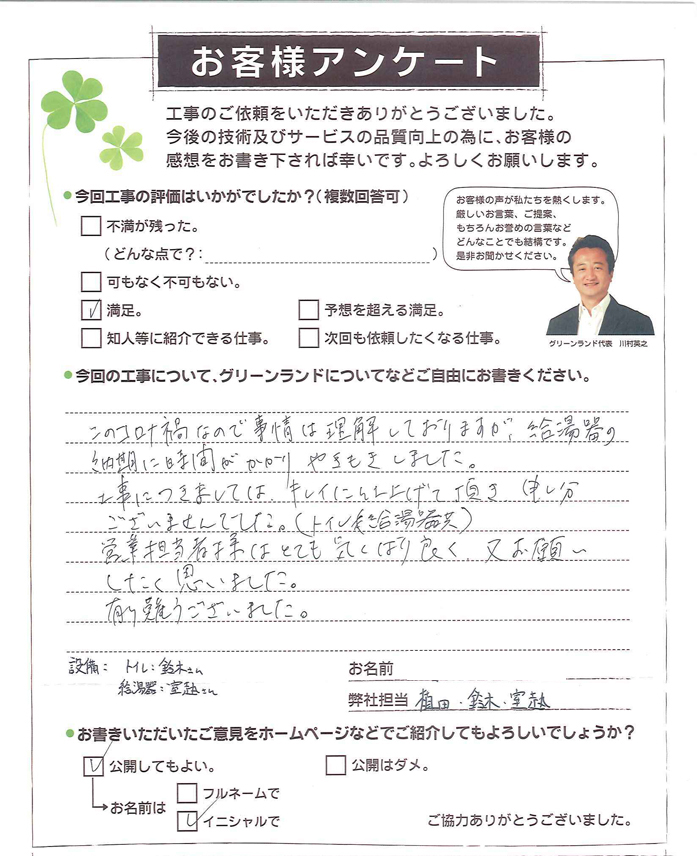 お客様アンケート
工事のご依頼をいただきありがとうございました。
今後の技術及びサービスの品質向上の為に、お客様の
感想をお書き下されば幸いです。よろしくお願いします。
●今回工事の評価はいかがでしたか？（複数回答可）
不満が残った。
（どんな点で？：　）
可もなく不可もない。
満足。
予想を超える満足。
知人等に紹介できる仕事。
次回も依頼したくなる仕事。
お客様の声が私たちを熱くします。
厳しいお言葉、ご提案、
もちろんお誉めの言葉など
どんなことでも結構です。
是非お聞かせください。
グリーンランド代表　川村英之
●今回の工事について、グリーンランドについてなどご自由にお書きください。
このコロナ禍なので事情は理解しておりますが、給湯器の
納期に時間がかかりやきもきしました。
工事につきましては、キレイに仕上げて頂き 申し分
ございませんでした。(トイレ給湯器共)
営業担当者様はとても気くばり良く、又お願い
したく思いました。
有り難うございました。
設備： トイレ：鈴木さん
給湯器：室越さん
お名前
弊社担当 植田・鈴木・室越
●お書きいただいたご意見をホームページなどでご紹介してもよろしいでしょうか？
公開してもよい。
公開はダメ。
お名前は
フルネームで
イニシャルで
ご協力ありがとうございました。